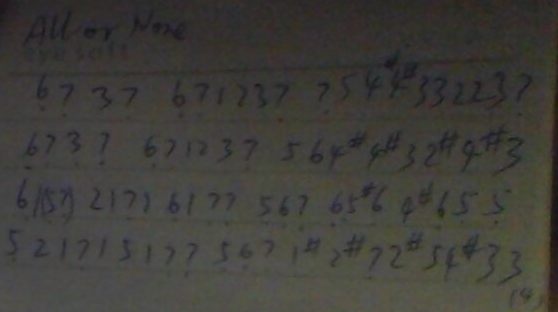 All or None
67 37 671737 75 4#4#332237
6737 671737 564#4#32#4#3
6 1(57) 2171 6177 567 65#6 4#655
5 2171 5177 567 1#2#72#54#33
(4)